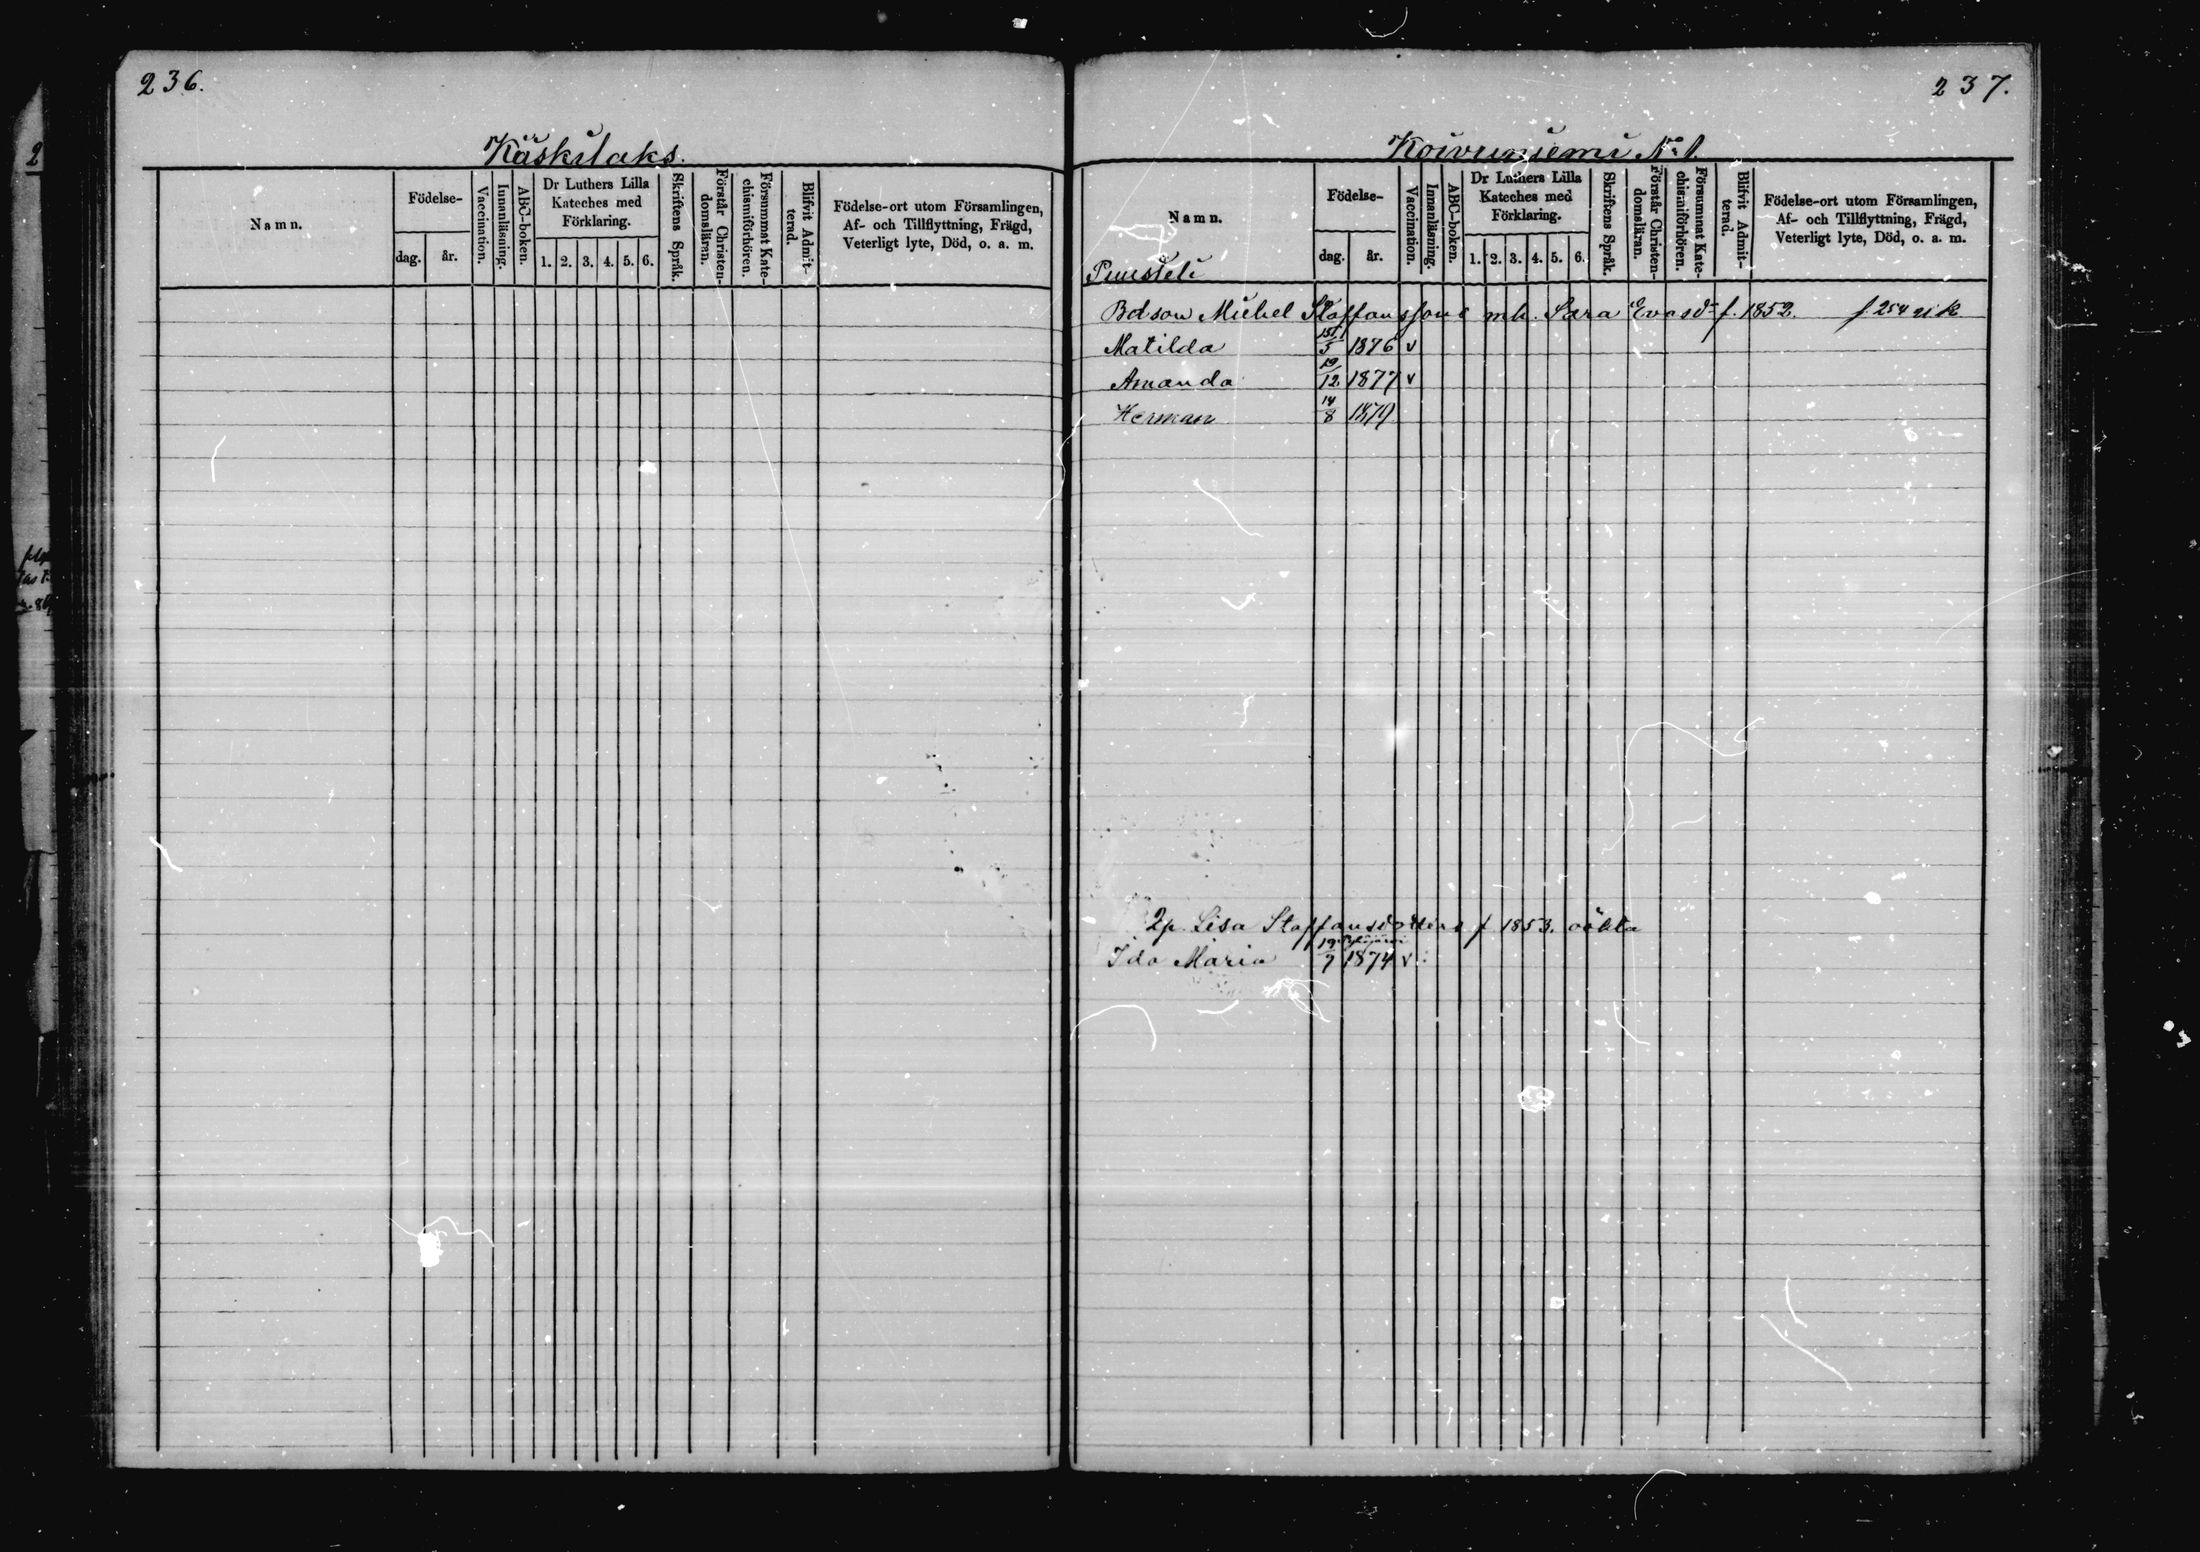 236.
Käskilaks.
Namn.
Födelse-
dag.
år.
Vaccination.
Innanläsning.
ABC-boken.
Dr Luthers Lilla
Kateches med
Förklaring.
1. 2. 3. 4. 5. 6.
Skriftens Språk.
Förstår Christen-
domsläran.
Försummat Kate-
chismiförhören.
Blifvit Admit-
terad.
Födelse-ort utom Församlingen,
Af- och Tillflyttning, Frägd,
Veterligt lyte, Död, o. a. m.
237.
Koivuniemi No 1.
Namn.
Födelse-
dag.
år.
Vaccination.
Innanläsning.
ABC-boken.
Dr Luthers Lilla
Kateches med
Förklaring.
1. 2. 3. 4. 5. 6.
Skriftens Språk.
Förstår Christen-
domsläran.
Försummat Kate-
chismiförhören.
Blifvit Admit-
terad.
Födelse-ort utom Församlingen,
Af- och Tillflyttning, Frägd,
Veterligt lyte, Död, o. a. m.
Bdson Michel Staffanssons mh. Sara Evasdr f. 1852. f. 254 uk
Matilda 5 1876 v
Amanda 19/12 1877 v
Herman 14/8 1879
Qp. Lisa Staffansdotters f 1853. oäkta
Ida Maria 19/7 1874 v